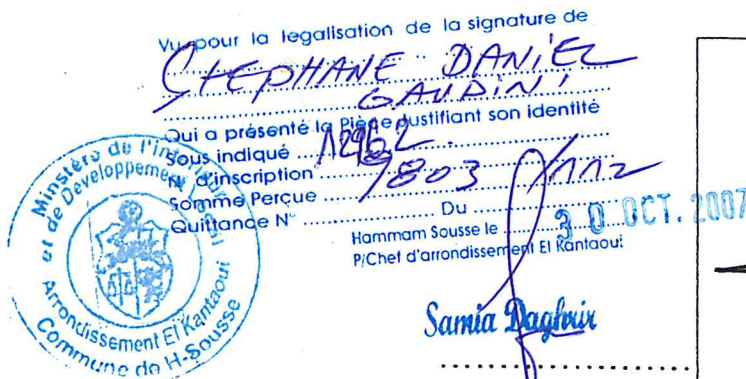 Vu pour la legalisation de la signature de
STEPHANE DANIEL
GAUDINI
Qui a présenté la Pièce Justifiant son identité
Sous indiqué
N° d'inscription
Somme Perçue
Quittance N° Du
Hammam Sousse le 30 OCT. 2007
P/Chef d'arrondissement El Kantaoui
Samia Daghrir
Minstère de l'
et de Developpement
Arrondissement El Kantaoui
Commune de H-Sousse